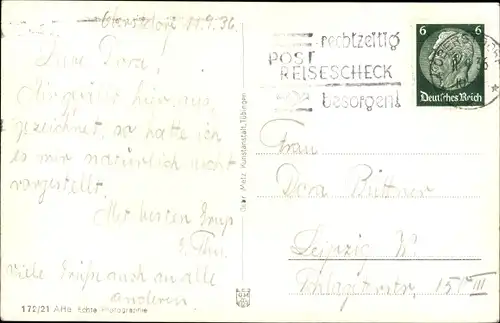 Oberstdorf 11.9.36
Liebe Dora!
Mir gefällt hier aus-
gezeichnet, so hatte ich
es mir natürlich nicht
vorgestellt.
Mit besten Gruß
viele Grüße auch an alle
anderen.
172/21 AHe Echte Photographie
Gebr. Metz, Kunstanstalt, Tübingen
rechtzeitig
POST
REISESCHECK
besorgen!
6 6
Deutsches Reich
Frau
Dora Büttner
Leipzig W.
Schlageterstr. 15 III